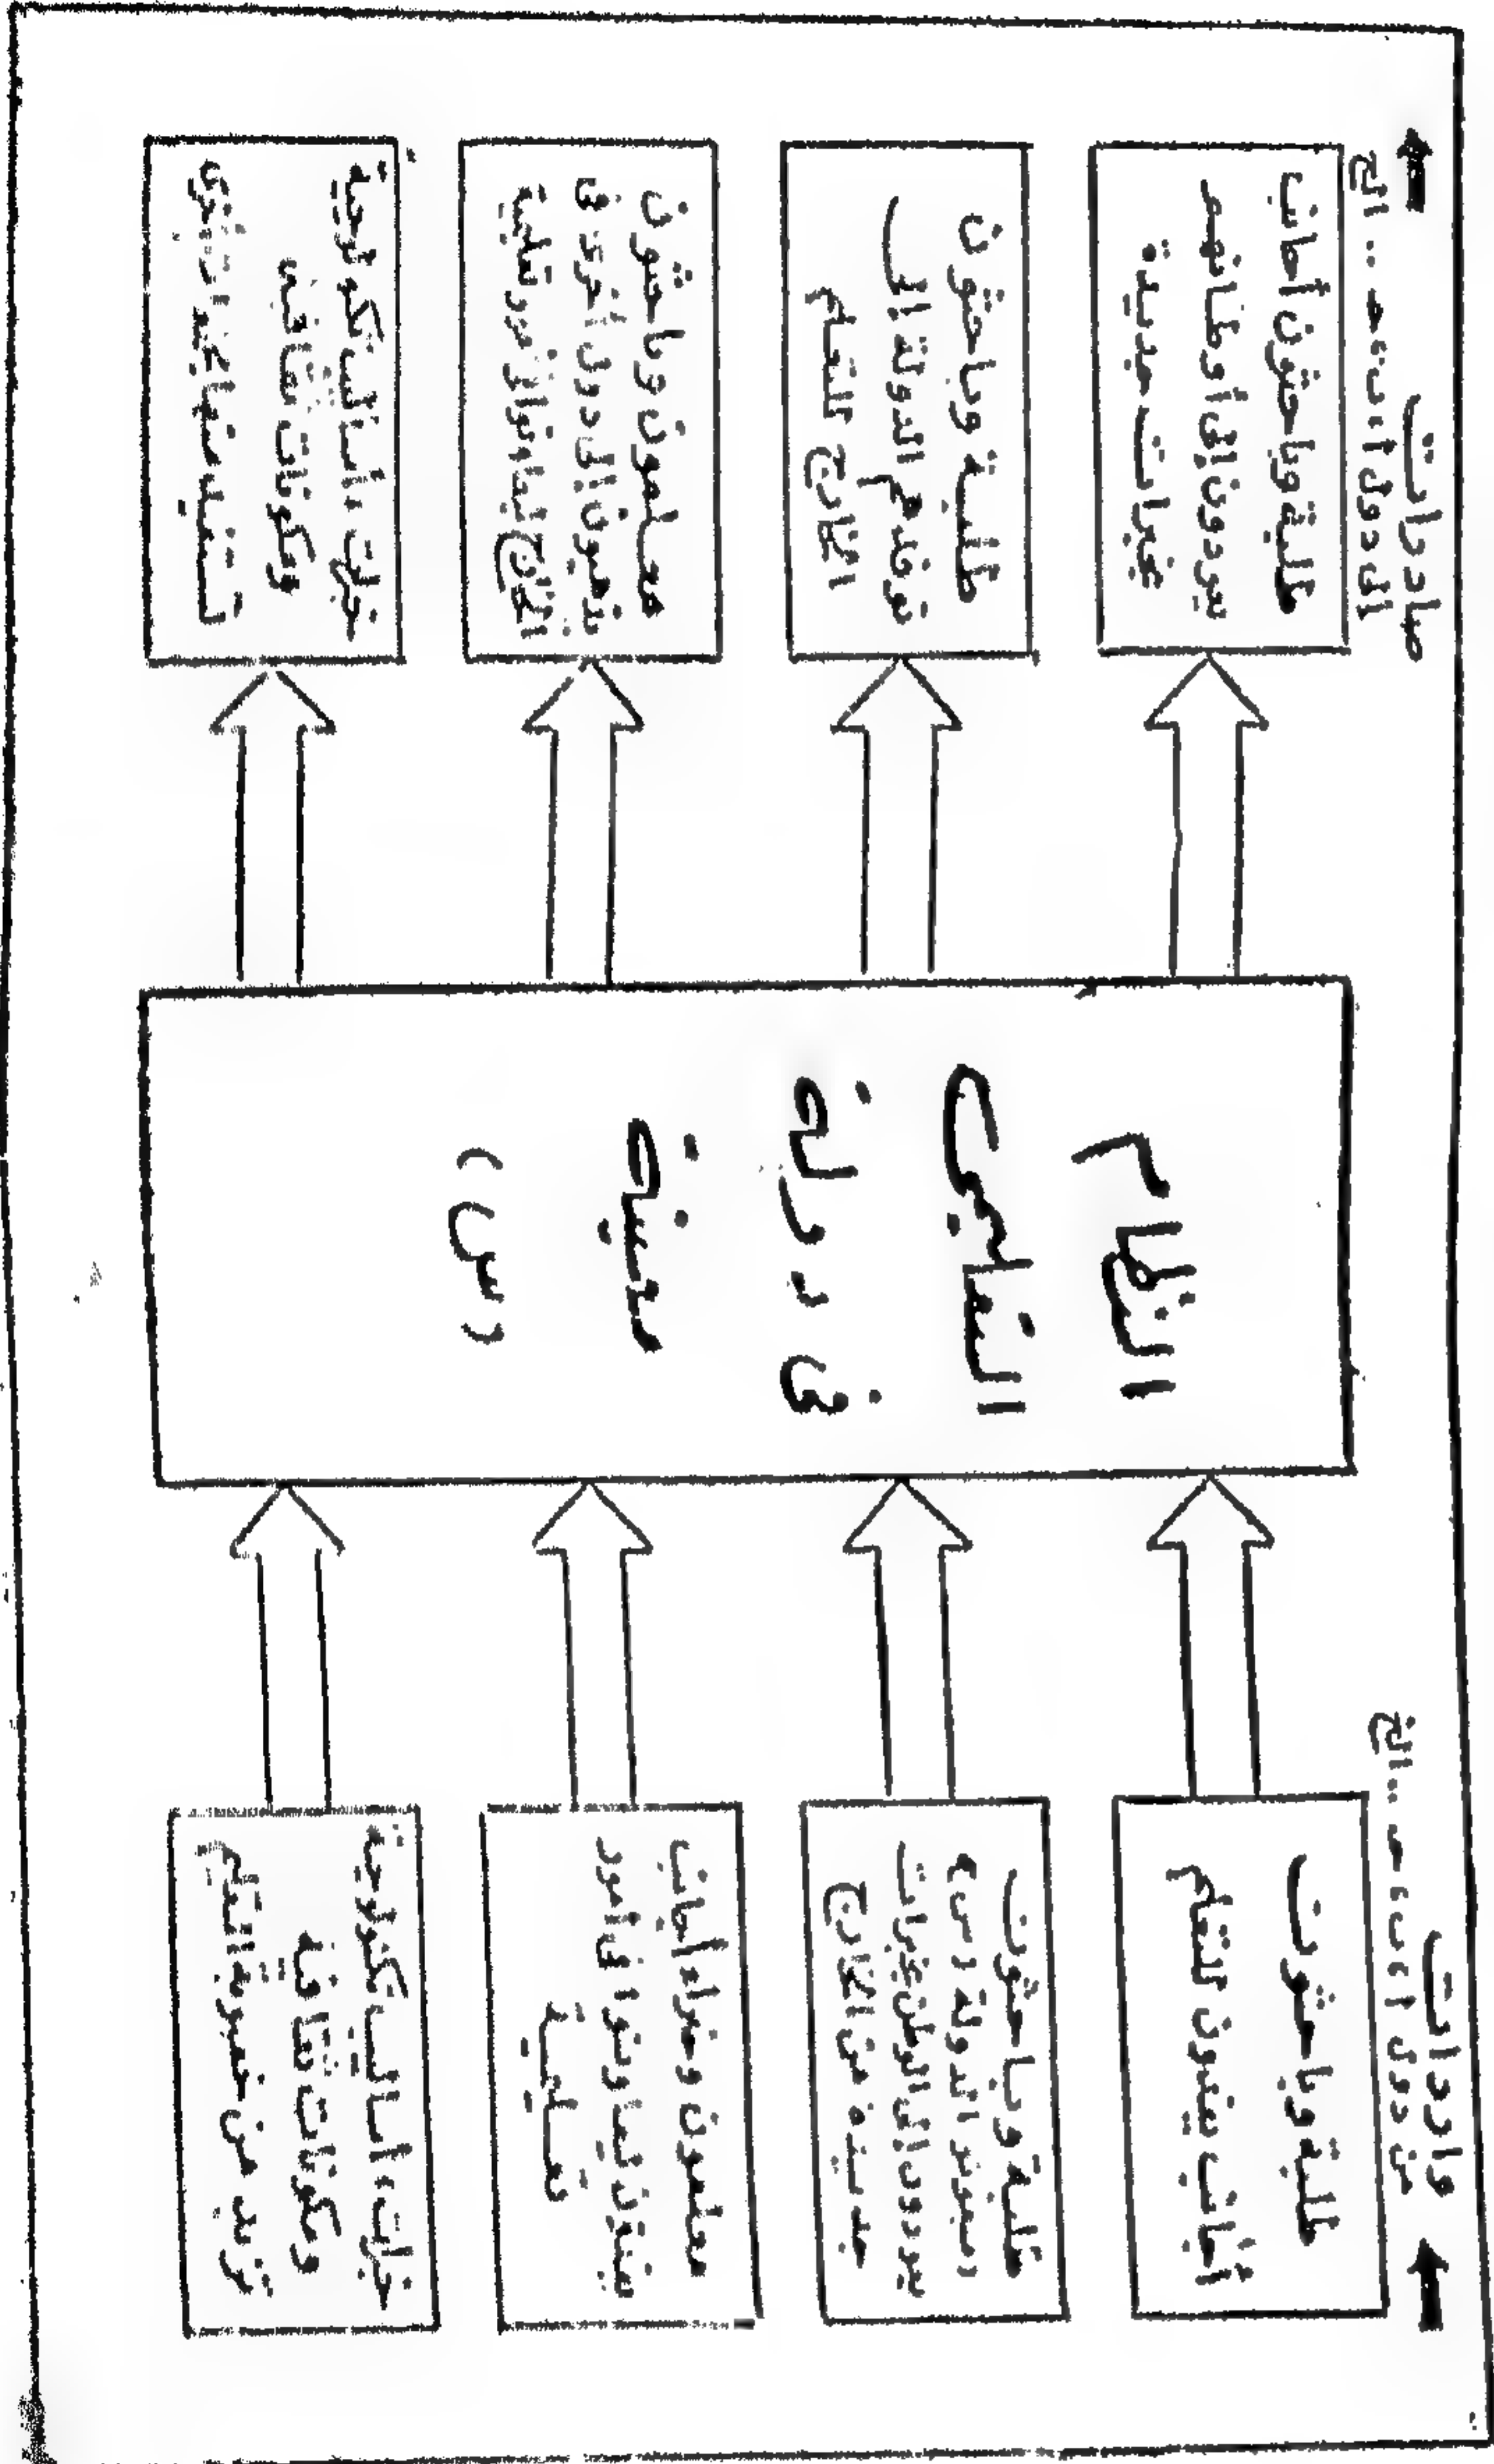 واردات
من دول أ ، ب ، ص .. الخ
طلبة وباحثون
أجانب يفدون للتعلم
طلبة وباحثون
مبعوثو الدولة (س)
يعودون إلى الوطن بخبرات
جديدة من الخارج
معلمون وخبراء أجانب
يفدون ليعاونوا في أمور
تعليمية
خبرات ، أساليب تكنولوجية
ومكونات ثقافية
تزيد من خصوبة التعليم
النظام
التعليمي
في دولة
معينة
(س)
صادرات
إلى دول أ ، ب ، ص .. الخ
طلبة وباحثون أجانب
يعودون إلى أوطانهم
بخبرات جديدة
طلبة وباحثون
توفدهم الدولة إلى
الخارج للتعلم
معلمون وباحثون
يذهبون إلى دول أخرى في
الخارج ليعاونوا في أمور تعليمية
خبرات ، أساليب تكنولوجية
ومكونات ثقافية
تستفيد منها مجتمعات أخرى